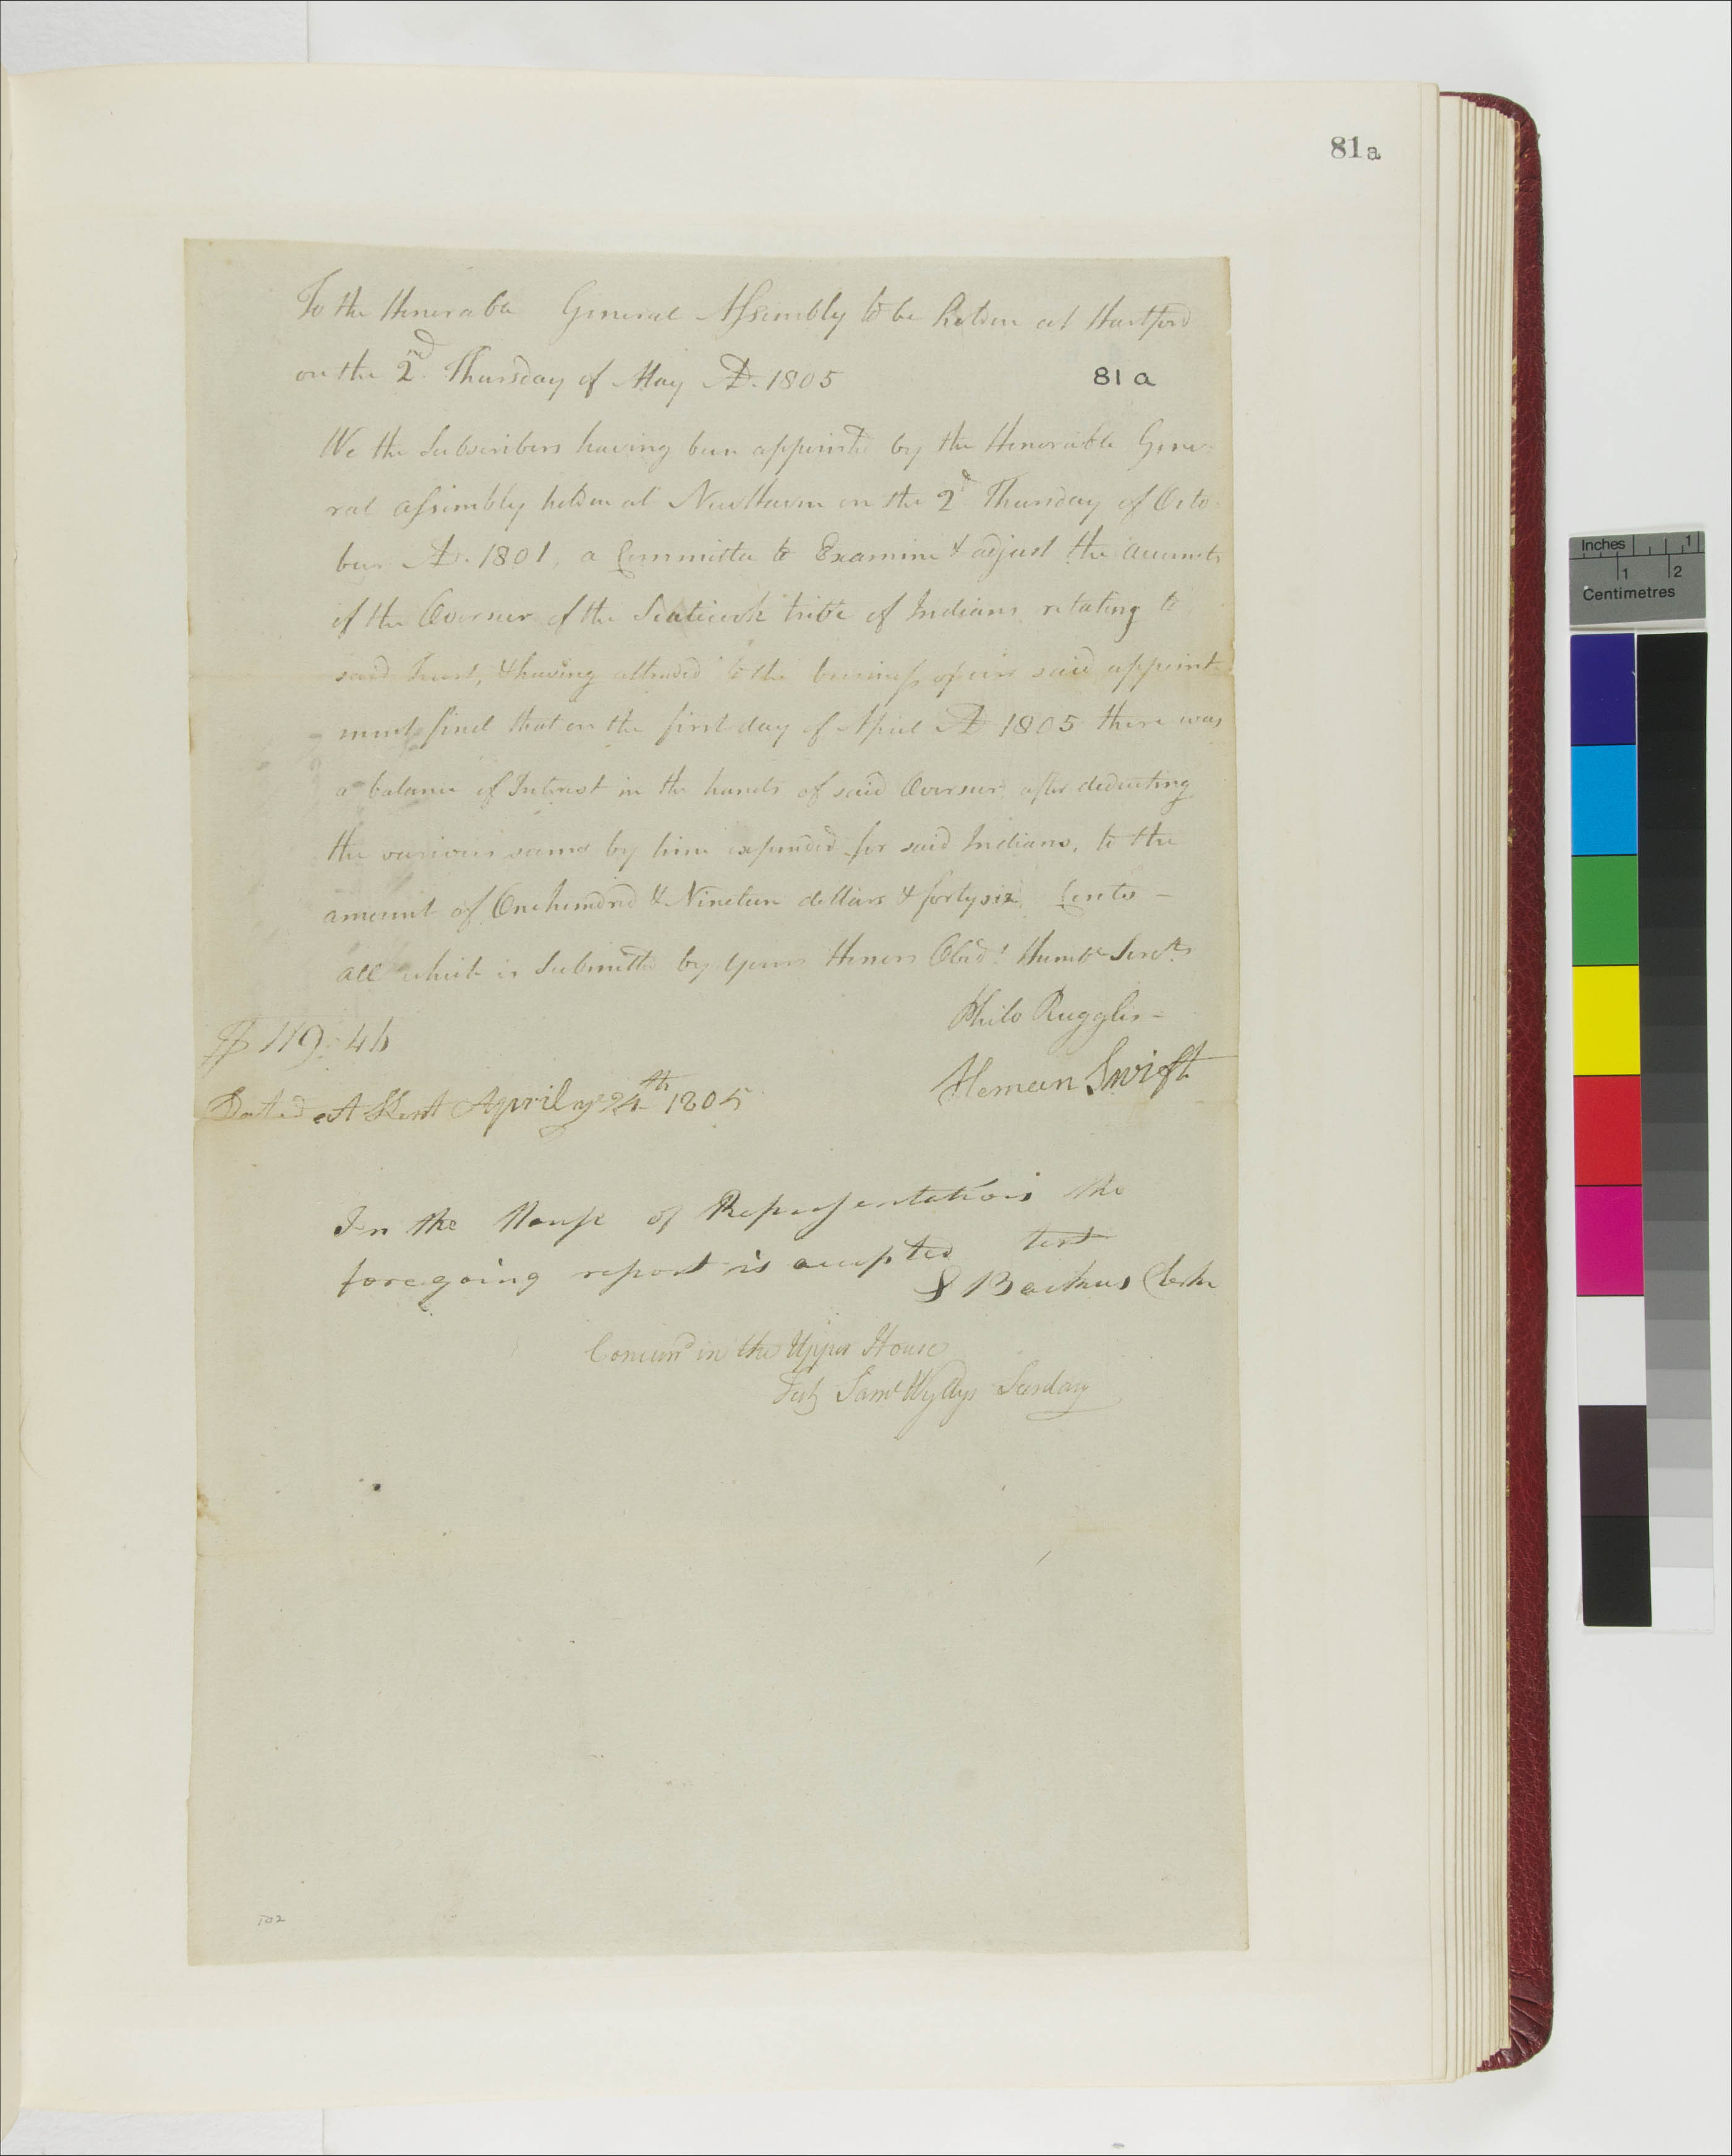 81a
To the Honorable General Assembly to be holden at Hartford
on the 2nd. Thursday of May AD. 1805
81 a
We the Subscribers having been appointed by the Honorable Gene-
ral assembly holden at New Haven on the 2d Thursday of Octo-
ber AD. 1801, a Committee to Examine & adjust the accounts
of the Overseer of the Scaticook tribe of Indians relating to
said trust, & having attended to the business of our said appoint-
ment find that on the first day of April AD 1805 there was
a balance of Interest in the hands of said Overseer after deducting
the various sums by him expended for said Indians, to the
amount of One hundred & Nineteen dollars & forty six Cents -
all which is Submitted by your Honors Obedt. Humbe Servts
Philo Ruggles -
$ 119. 46
Heman Swift
Dated at Kent April ye 24th 1805
In the House of Representatives the
foregoing report is accepted test
S Backus Clerk
Concurrd in the Upper House
Test Saml Wyllys Secretary
Inches 1
1 2
Centimetres